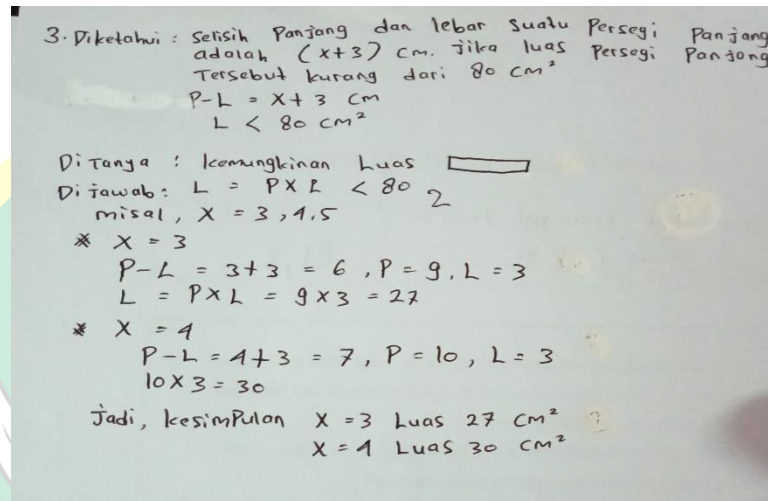 3. Diketahui : Selisih Panjang dan lebar Suatu Persegi Panjang
adalah (x+3) cm. jika luas Persegi Panjang
Tersebut kurang dari 80 cm²
P-L = x+3 cm
L < 80 cm²
Di Tanya : kemungkinan Luas
Di jawab : L = P X L < 80 2
misal, x = 3,4.5
* x = 3
P-L = 3+3 = 6, P = 9, L = 3
L = P X L = 9 X 3 = 27
* x = 4
P-L = 4+3 = 7, P = 10, L = 3
10 X 3 = 30
Jadi, kesimpulan x = 3 Luas 27 cm²
x = 4 Luas 30 cm²